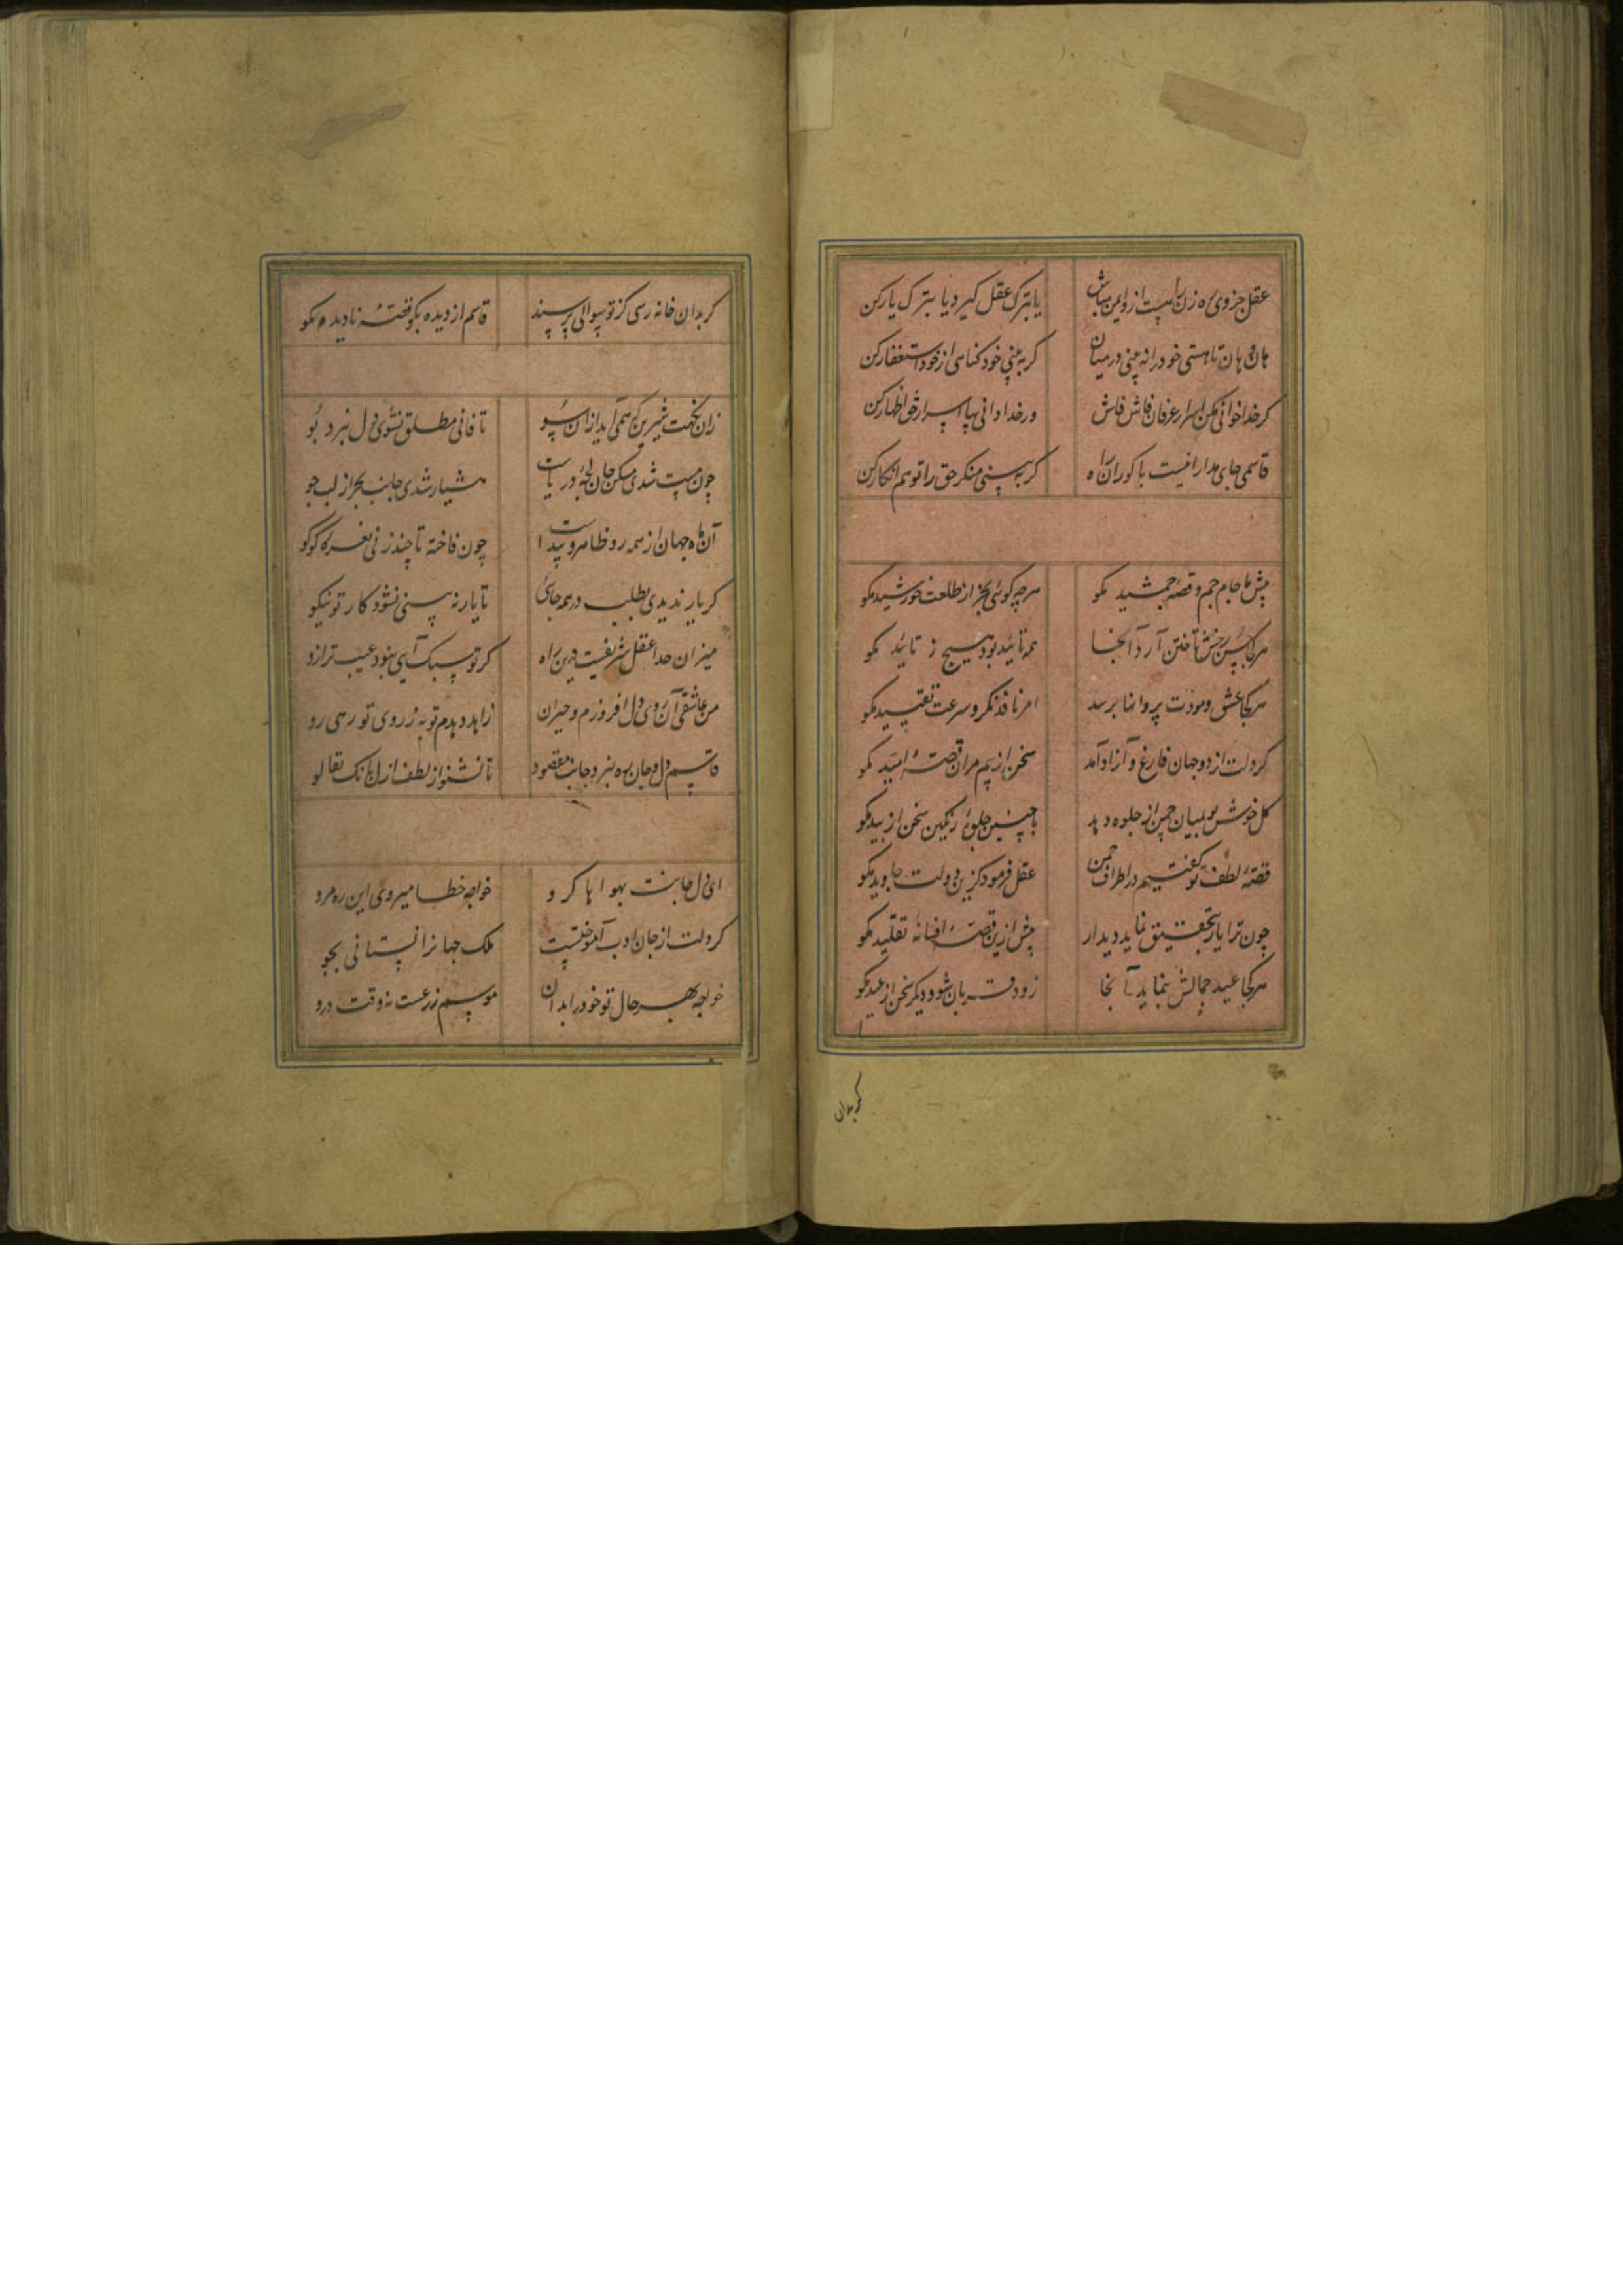 عقل جزوی ره زن راهست ازو ایمن مباش یا بترک عقل کیر دیا بترک یار کن
هان و هان تا هستی خود را نه بینی در میان کر به بینی خود کناهی از خود استغفار کن
کر خدا خوانی مکن اسرار عرفان فاش فاش ور خدا دانی بیا اسرار حق اظهار کن
قاسمی جای مدارا نیست با کوران راه کر به بینی منکر حق را تو هم انکار کن
پیش ما جام جم و قصه جمشید مکو هرچه کوئی بجز از طلعت خورشید مکو
هر کجا حسن رخش تاختن آرد آنجا همه تائید بود هیچ ز تائید مکو
هر کجا عشق و مودت پروانها برسد امر نافذ نکر و سرعت تنقید مکو
کر دلت از دو جهان فارغ و آزاد آمد سخن از بیم مران قصهٔ امید مکو
کل خوش بو بمیان چمن از جلوه دهد با چنین جلوهٔ رنکین سخن از بید مکو
قصهٔ لطف تو کفتیم در اطراف چمن عقل فرمود کزین دولت جاوید مکو
چون ترا یار بتحقیق نماید دیدار پیش ازین قصهٔ افسانهٔ تقلید مکو
هر کجا عید جمالش بنماید آنجا زود قربان شو و دیکر سخن از عید مکو
کر بدان
کر بدان خانه رسی کز تو سوالی پرسند قاسم از دیده بکو قصهٔ نادیده مکو
زان نکهت شیرین که همی آید از آن سو تا فانی مطلق نشوی دل نبرد بو
چون مست شدی مسکن جان لجهٔ دریاست هشیار شدی جانب بحر از لب جو
آن ماه جهان از همه رو ظاهر و پیدا چون فاخته تا چند زنی نعرهٔ کو کو
کر یار ندیدی بطلب در همه جای تا یار نه بینی نشود کار تو نیکو
میزان خدا عقل شریفست درین راه کر تو سبک آیی نبود عیب ترازو
من عاشقی آن روی دل افروزم و حیران زاهد دهدم توبه ز روی تو زهی رو
قاسم دل و جان ره نبرد جانب مقصود تا نشنود از لطف ازل بانک تعالو
ای دل جانت بهواها کرو خواجه خطا میروی این ره مرو
کر دلت از جان ادب آموختست ملک جهانرا نستانی بجو
خواجه بهر حال تو خود را بدان موسم زرعست نه وقت درو